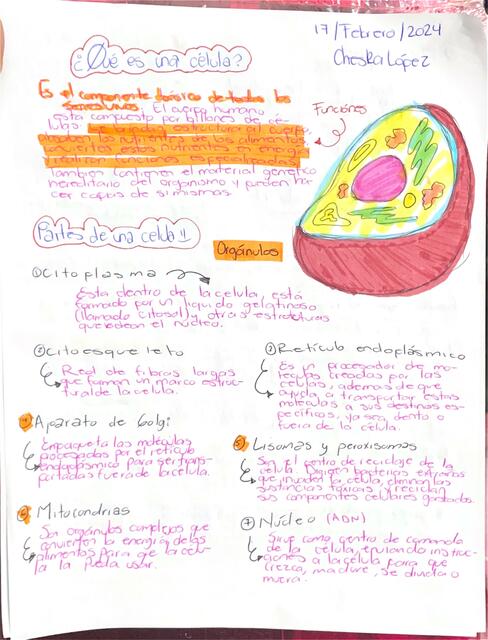 17/Febrero/2024
Cheska López
¿Qué es una célula?
Es el componente básico de todos los
seres vivos. El cuerpo humano
esta compuesto por billones de cé-
lulas, que brindan estructura al cuerpo,
absorben los nutrientes de los alimentos,
convierten estos nutrientes en energía
y realizan funciones especializadas.
También contienen el material genético
hereditario del organismo y pueden ha-
cer copias de si mismas.
Funciones
Partes de una celula!!
Orgánulos
① Citoplasma
Esta dentro de la celula, está
formado por un liquido gelatinoso
(llamado citosol) y otras estructuras
que rodean el núcleo.
② Citoesqueleto
Red de fibras largas
que forman un marco estruc-
tural de la celula.
③ Retículo endoplásmico
Es un procesador de mo-
leculas creadas por las
células, ademas de que
ayuda a transportar estas
moleculas a sus destinos es-
pecíficos, ya sea dentro o
fuera de la célula.
④ Aparato de Golgi
Empaqueta las moléculas
procesadas por el retículo
endoplásmico para ser trans-
portadas fuera de la celula.
⑤ Lisomas y peroxisomas
Son el centro de reciclaje de la
célula. Digieren bacterias extrañas
que invaden la célula, eliminan las
sustancias toxicas y reciclan
sus componentes celulares gastados.
⑥ Mitocondrias
Son orgánulos complejos que
convierten la energía de los
alimentos para que la celu-
la la pueda usar.
⑦ Núcleo (ADN)
Sirve como centro de comando
de la célula, enviando instruc-
ciones a la célula para que
crezca, madure, se divida o
muera.